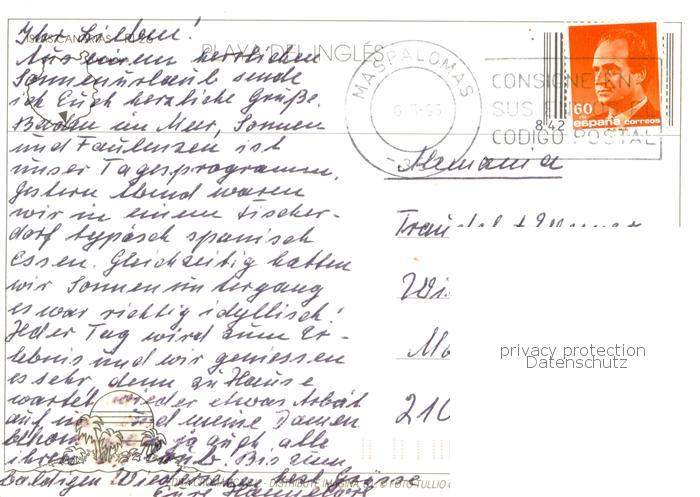 Ihr Lieben!
PLAYA DEL INGLÉS
Aus einem herrlichen
Sonnenurlaub sende
ich Euch herzliche Grüße.
Baden im Meer, Sonnen
und Faulenzen ist
unser Tagesprogramm.
Gestern Abend waren
wir in einem Fischer-
dorf typisch spanisch
essen. Gleichzeitig hatten
wir Sonnenuntergang
es war richtig idyllisch!
Jeder Tag wird zum Er-
lebnis und wir geniessen
es sehr, denn zu Hause
wartet wieder etwas Arbeit
auf und meine Damen
ja auch alle
Bis zum
baldigen Wiedersehen
Eure Hannelore
MASPALOMAS
CONSIGNE EN
SUS
CODIGO POSTAL
60
españa correos
8.42
Alemania
Traudel +
Wi
210
privacy protection
Datenschutz
DISTRIBUTE
© FOTO TULLIO